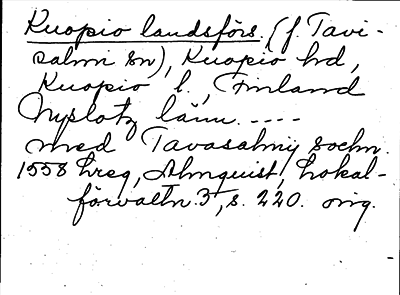 Kuopio landsförs. (f. Tavi-
salmi sn), Kuopio hd,
Kuopio l., Finland
Nyslotz länn. ----
med Tavasalmj sochn.
1558 hreg, Almquist, Lokal-
förvaltn. 3, s. 220. orig.